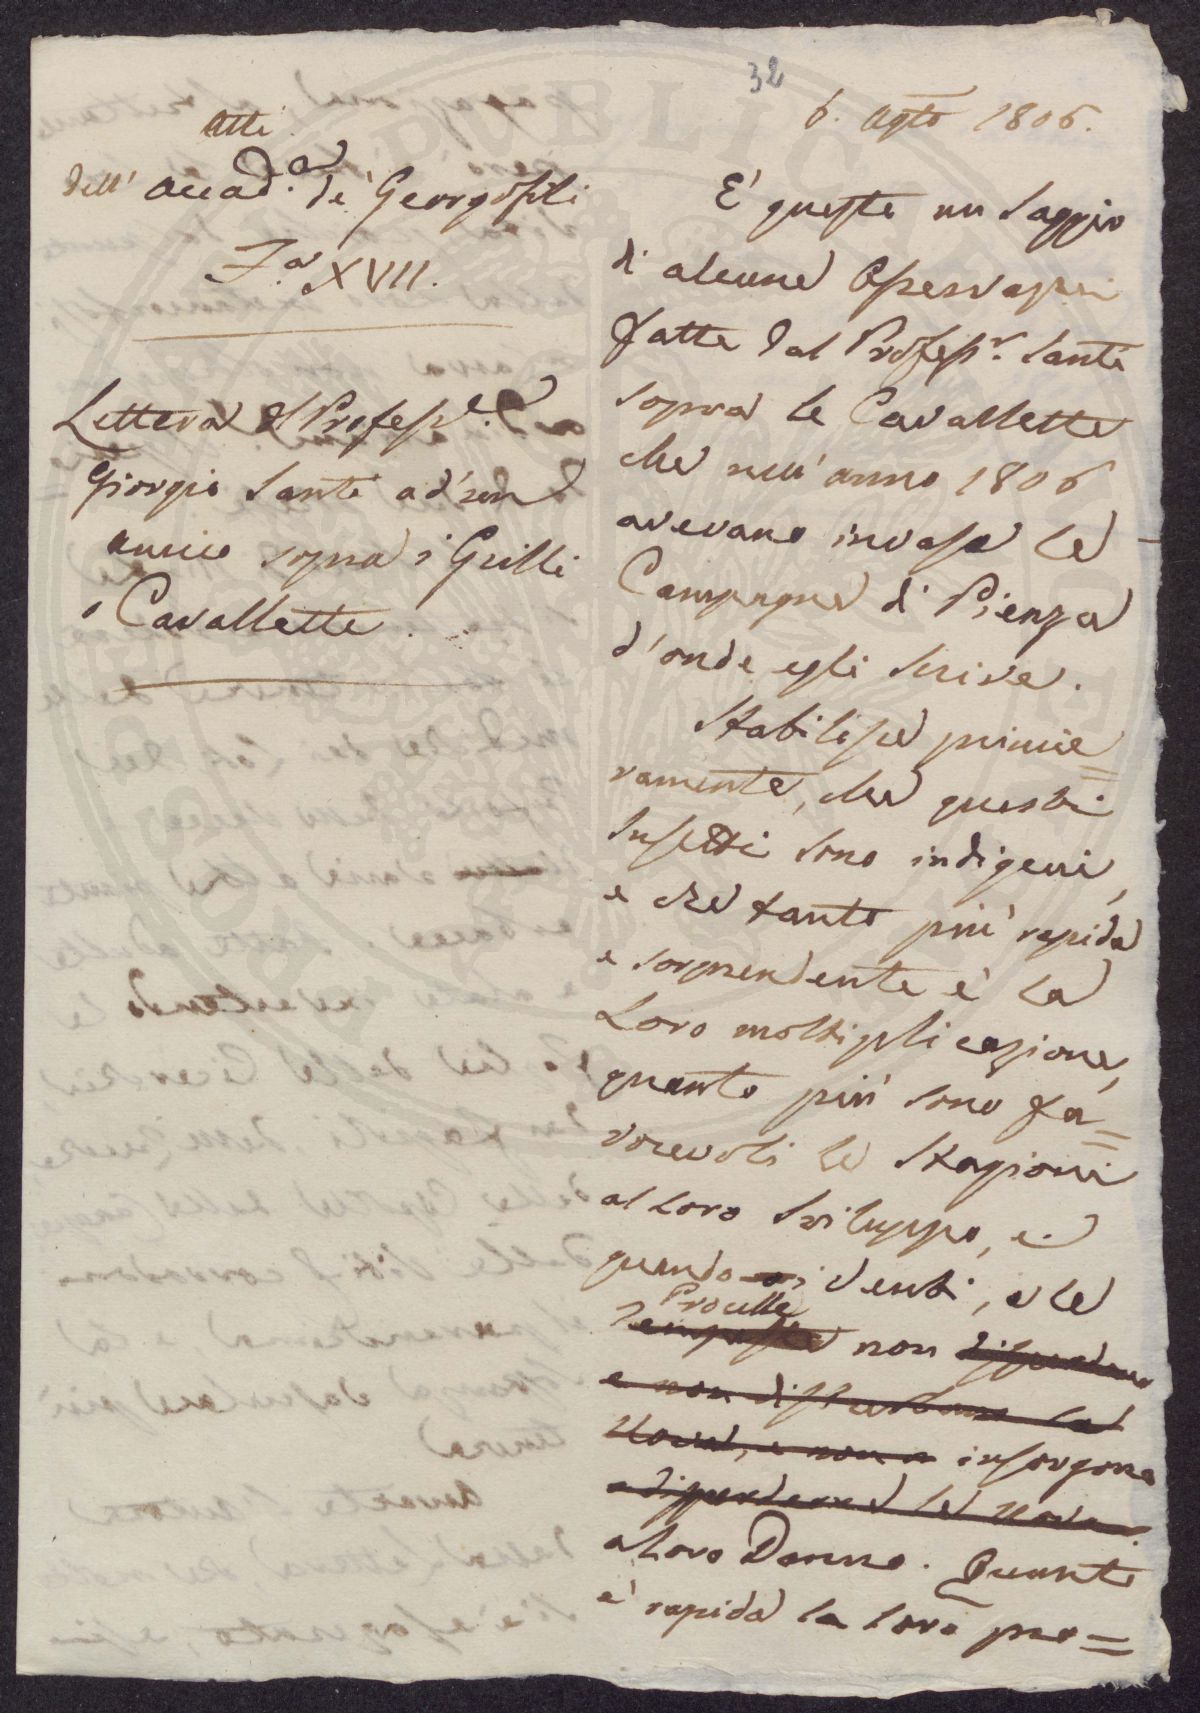 32
6. Agto 1806.
Atti
dell' Accad.a de' Georgofili
F.a XVII.
Lettera del Profess.e
Giorgio Santi ad un
amico sopra i Grilli
o Cavallette.
E' questo un Saggio
di alcune Osservazioni
fatte dal Profess.r Santi
sopra le Cavallette
che nell'anno 1806
avevano invase le
Campagne di Pienza
d'onde egli scrive.
Stabilisce primie=
ramente, che questi
Insetti sono indigeni,
e che tanto più rapida
e sorprendente è la
Loro moltiplicazione,
quanto più sono fa=
vorevoli le Stagioni
al Loro Sviluppo, e
quando i Venti, e le
Procelle
Tempeste non disperdono
e non disturbano le
Uova, e non insorgono
a disperderne le uova
a Loro Danno. Quanto
è rapida la loro pro=